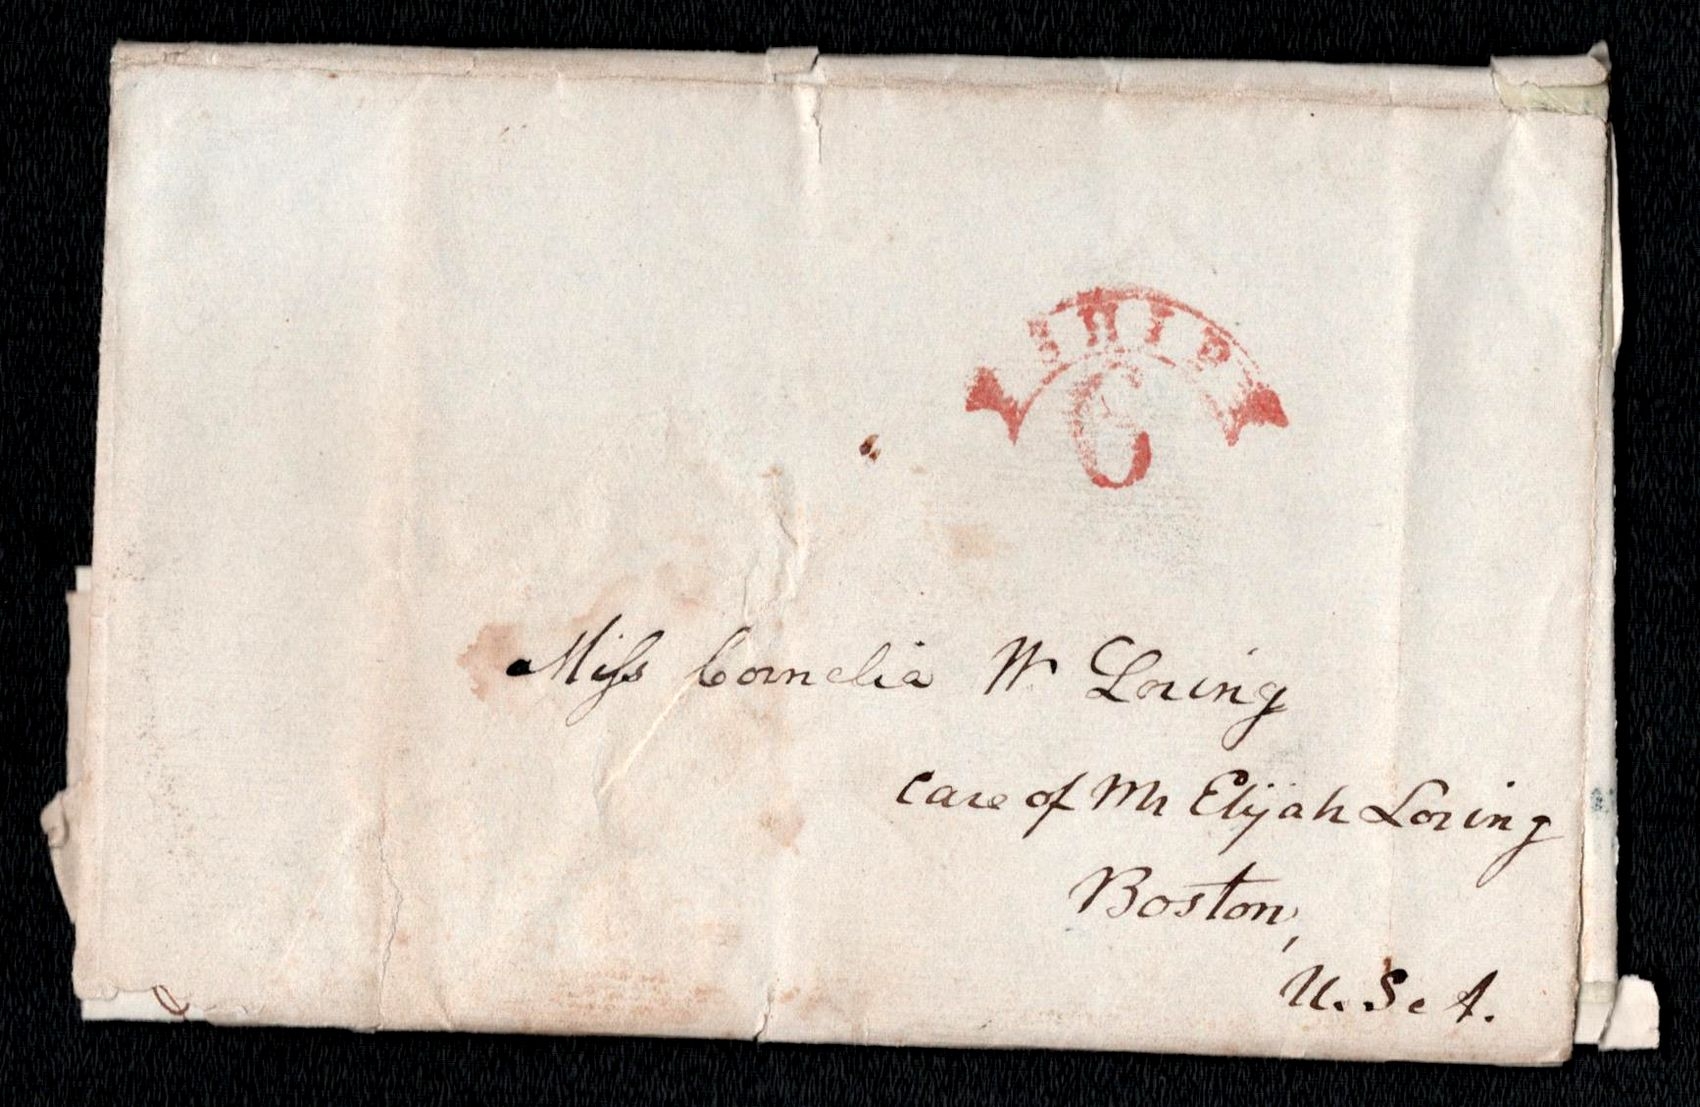 SHIP
6
Miss Cornelia W Loring
care of Mr Elijah Loring
Boston,
U. S. A.